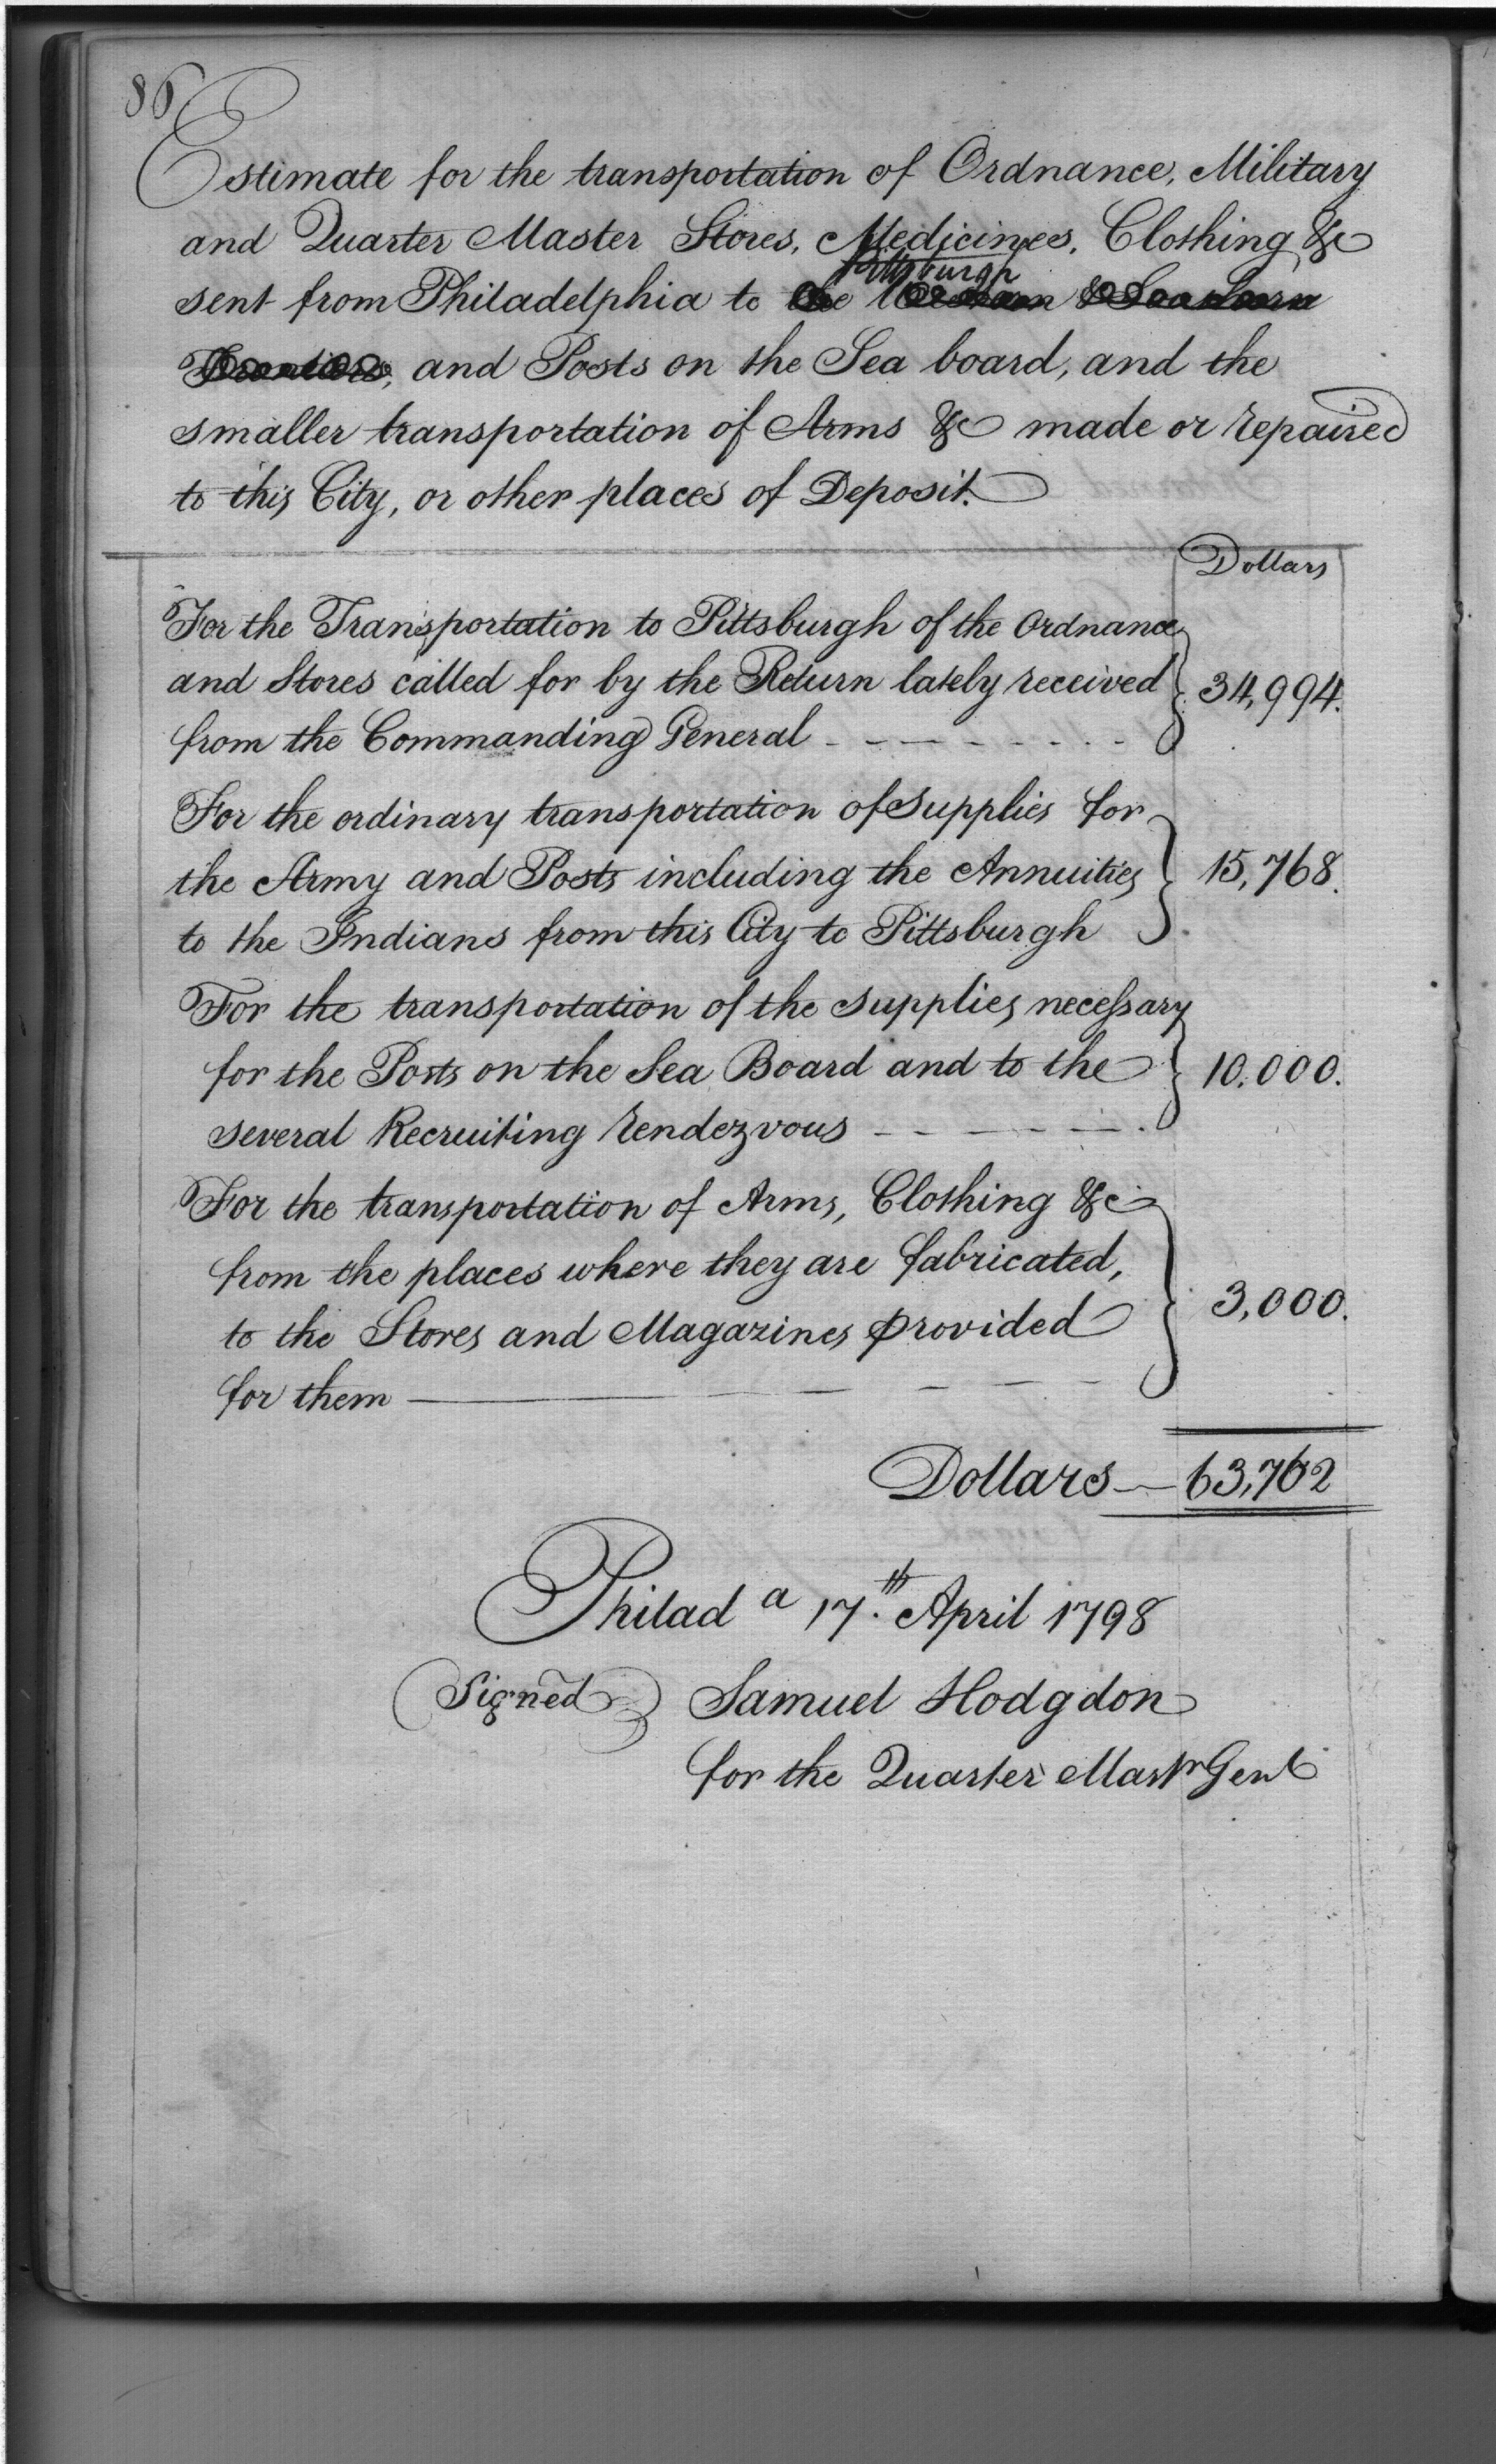 86
Estimate for the transportation of Ordnance, Military
and Quarter Master Stores, Medicines, Clothing &c
Pittsburgh
sent from Philadelphia to the Western & Southern
Frontiers, and Posts on the Sea board, and the
smaller transportation of Arms &c made or repaired
to this City, or other places of Deposit.
Dollars
For the Transportation to Pittsburgh of the Ordnance
and Stores called for by the Return lately received 34,994.
from the Commanding General
For the ordinary transportation of Supplies for
the Army and Posts including the Annuities 15,768.
to the Indians from this City to Pittsburgh
For the transportation of the supplies necessary
for the Posts on the Sea Board and to the 10,000.
several Recruiting rendezvous
For the transportation of Arms, Clothing &c
from the places where they are fabricated,
to the Stores and Magazines provided 3,000.
for them
Dollars — 63,762
Philada 17th. April 1798
(Signed) Samuel Hodgdon
for the Quarter Mastr Genl